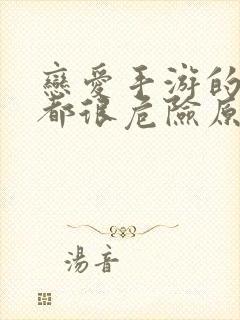 戀愛手游的
都很危險原
湯音